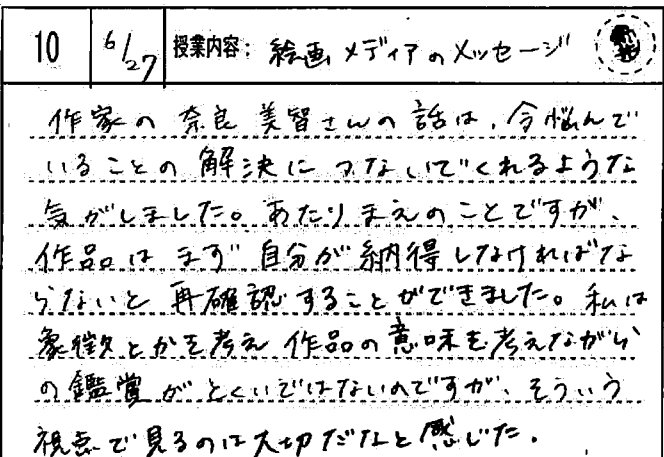 10 6/27 授業内容: 絵画メディアのメッセージ
作家の奈良美智さんの話は、今悩んで
いることの解決につないでくれるような
気がしました。あたりまえのことですが、
作品はまず自分が納得しなければな
らないと再確認することができました。私は
象徴とかを考え作品の意味を考えながら
の鑑賞がとくいではないのですが、そういう
視点で見るのは大切だなと感じた。